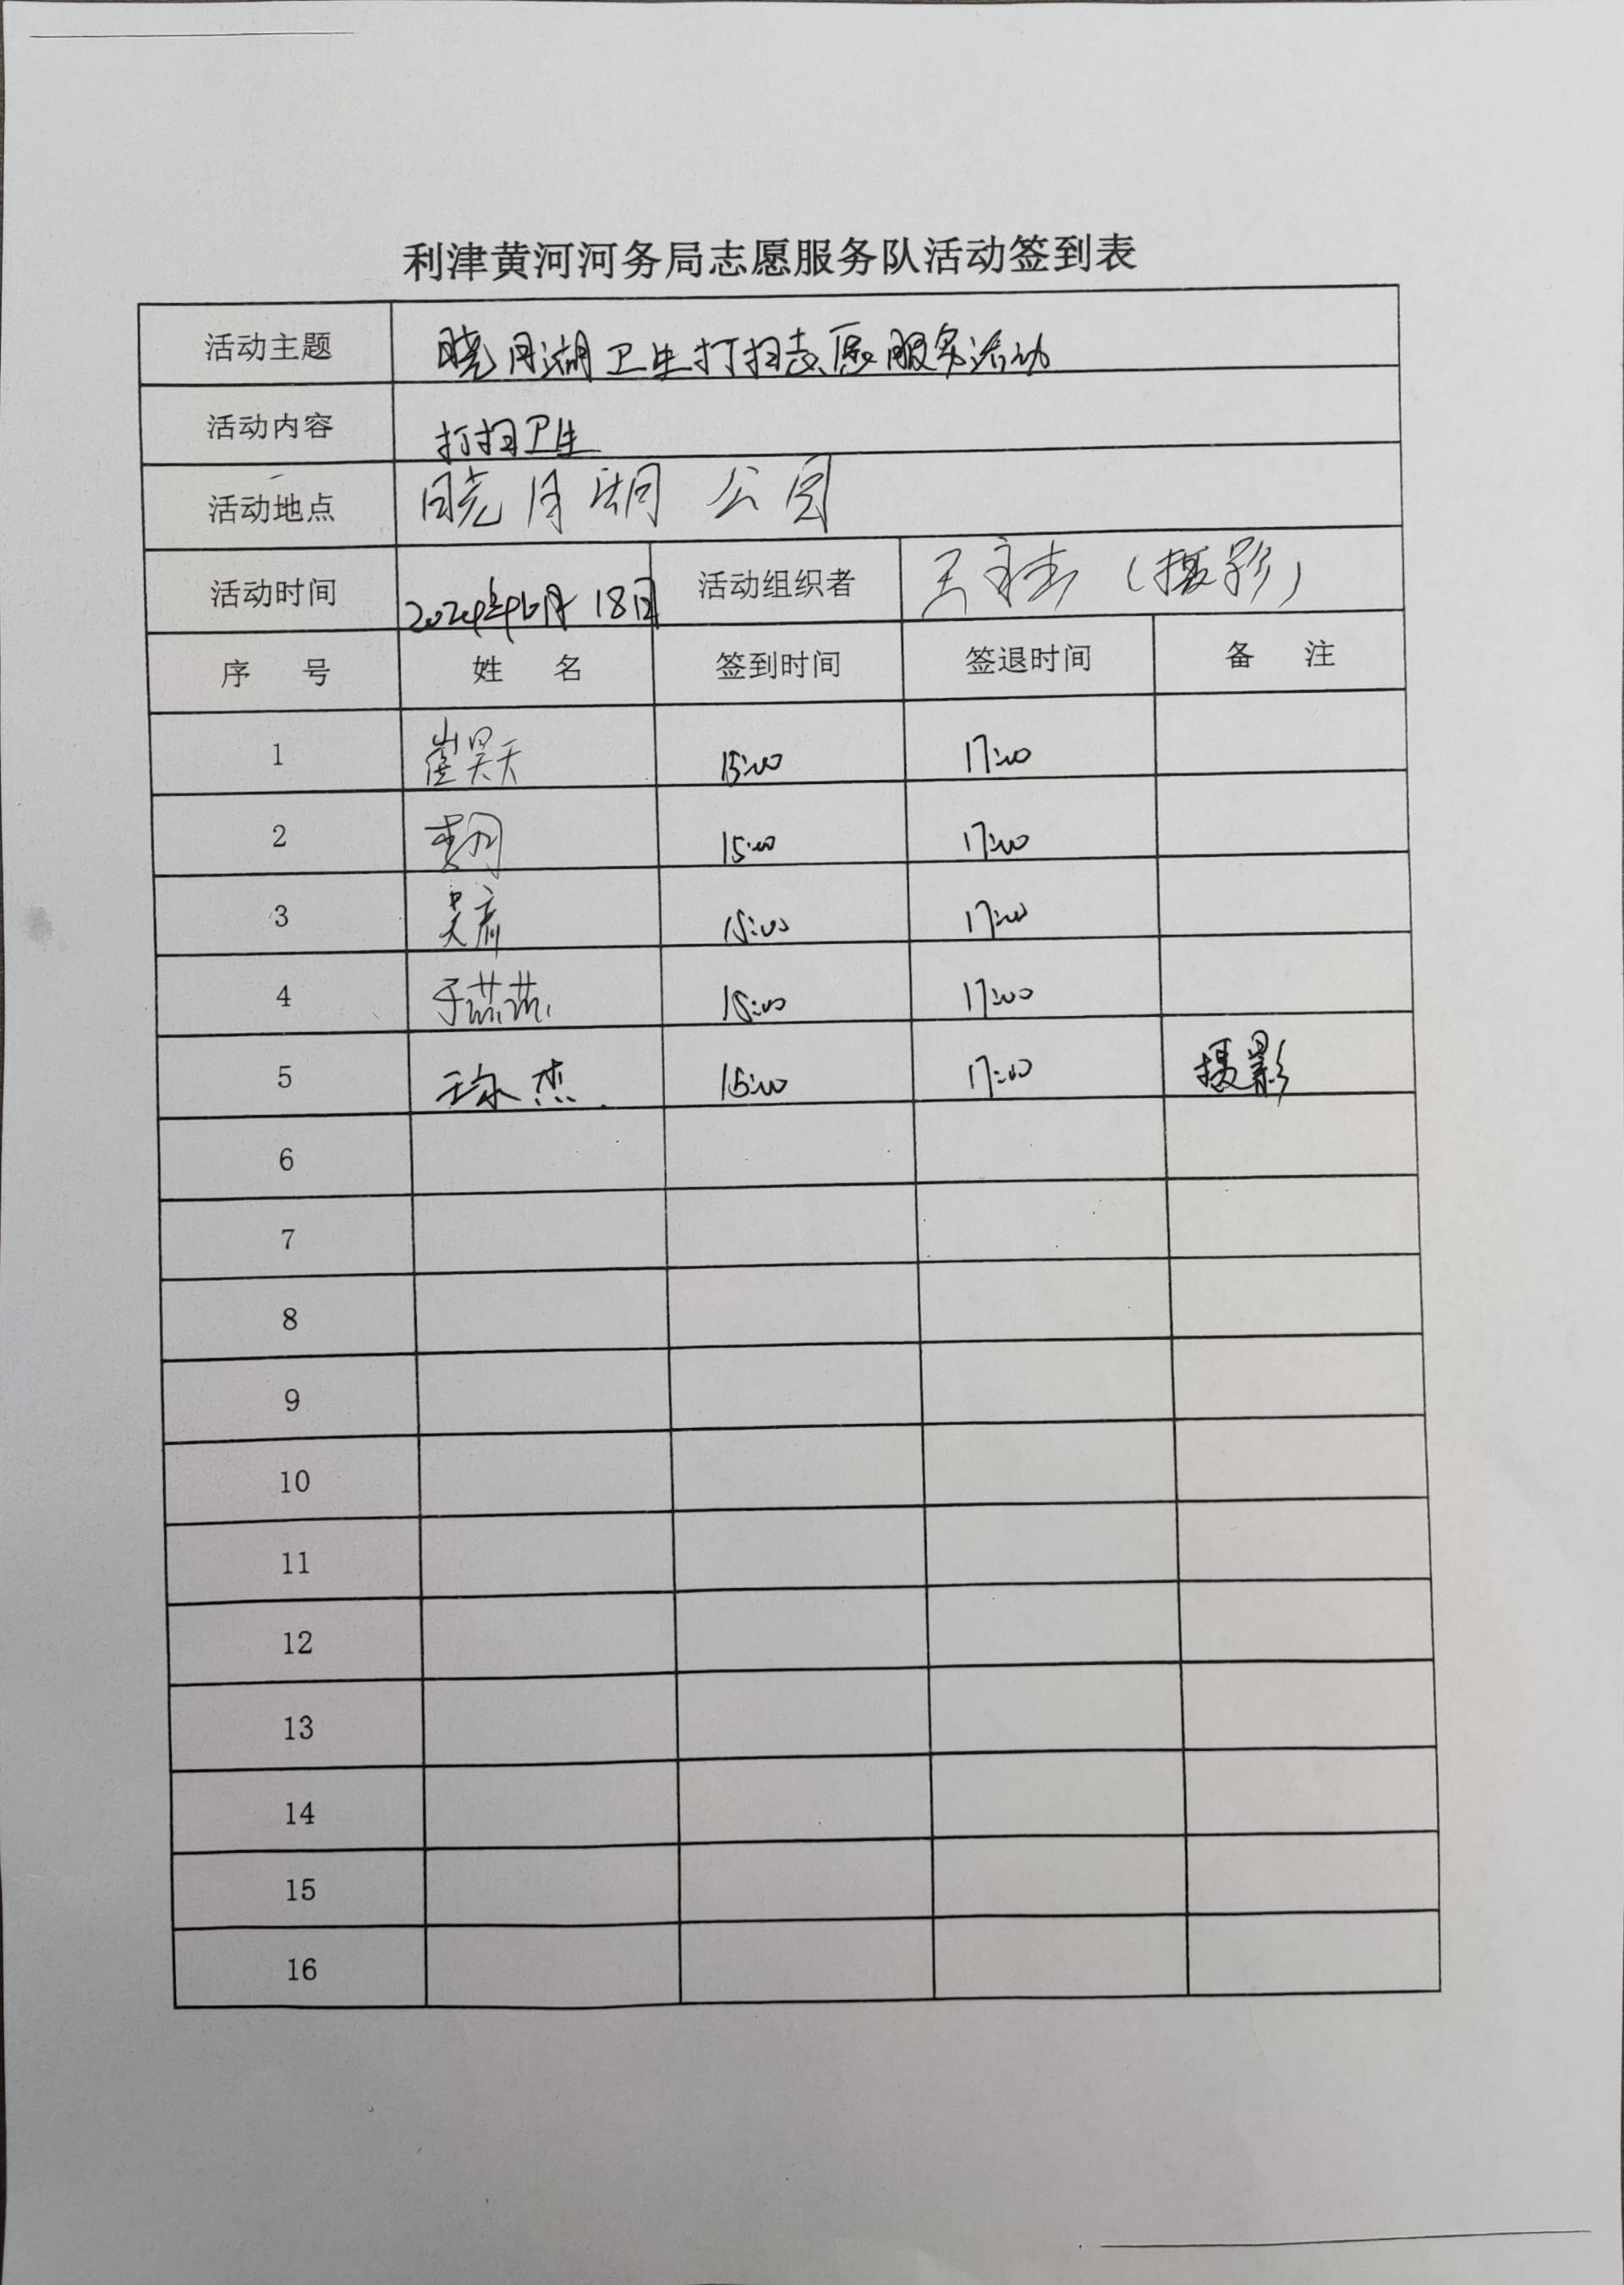 利津黄河河务局志愿服务队活动签到表
活动主题 晓月湖卫生打扫志愿服务活动
活动内容 打扫卫生
活动地点 晓月湖 公园
活动时间 2024年6月18日 活动组织者 (摄影)
序 号 姓 名 签到时间 签退时间 备 注
1 崔昊天 15:00 17:00
2 15:00 17:00
3 15:00 17:00
4 15:00 17:00
5 15:00 17:00 摄影
6
7
8
9
10
11
12
13
14
15
16